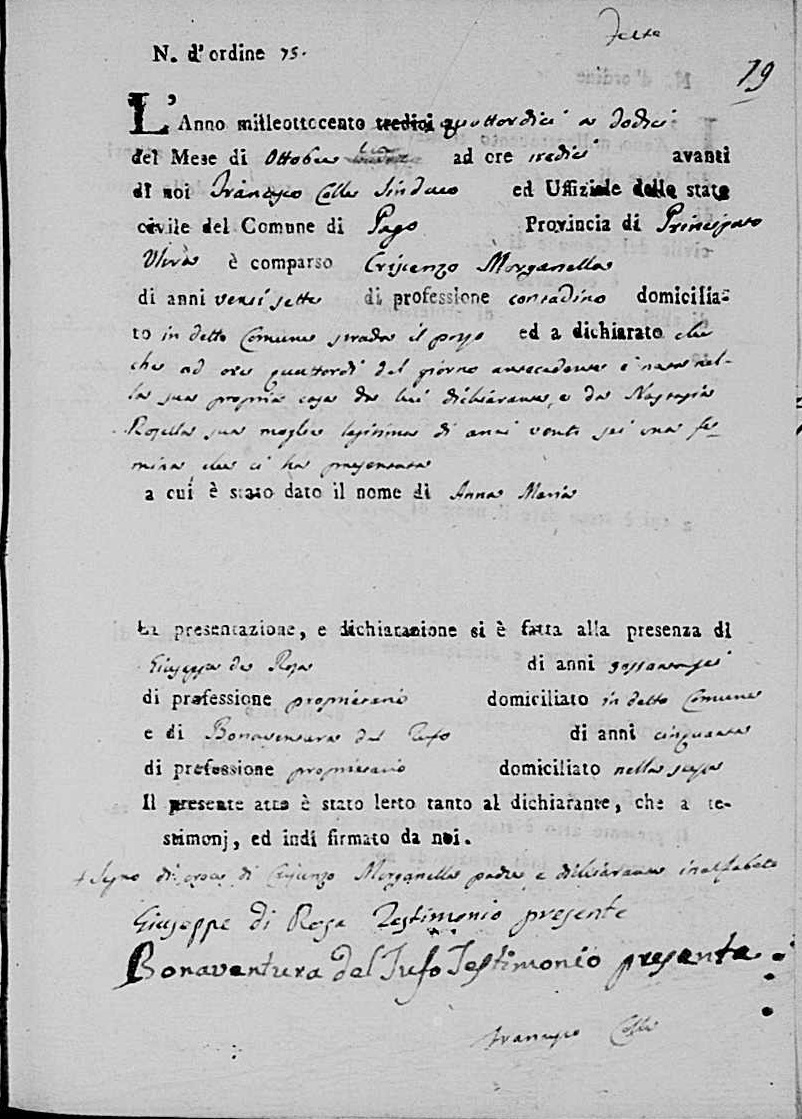 N. d'ordine 75.
79
L'Anno milleottocento tredici quattordici a dodici
del Mese di Ottobre ad ore tredici avanti
di noi Francesco Colle Sindaco ed Uffiziale dello stato
civile del Comune di Pago Provincia di Principato
Ultra è comparso Criscenzo Morganella
di anni ventisette di professione contadino domicilia-
to in detto Comune strada il pozzo ed a dichiarato che
che ad ore quattordi del giorno antecedente è nata nel-
la sua propria casa da lui dichiarante, e da Nastasia
Rosella sua moglie legitima di anni venti sei una fe-
mina che ci ha presentata
a cui è stato dato il nome di Anna Maria
La presentazione, e dichiarazione si è fatta alla presenza di
Giuseppe de Rosa di anni
di professione proprietario domiciliato in detto Comune
e di Bonaventura del Tufo di anni cinquanta
di professione proprietario domiciliato nello stesso
Il presente atto è stato letto tanto al dichiarante, che a te-
stimonj, ed indi firmato da noi.
+ Segno di croce di Criscenzo Morganella padre e dichiarante inalfabeto
Giuseppe di Rosa Testimonio presente
Bonaventura del Tufo Testimonio presente
Francesco Colle